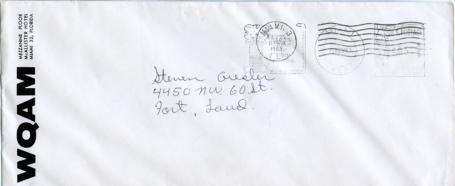 MEZZANINE FLOOR
McALLISTER HOTEL
MIAMI 32, FLORIDA
WQAM
MIAMI
Steven
4450 NW 60 St.
Fort, Laud.